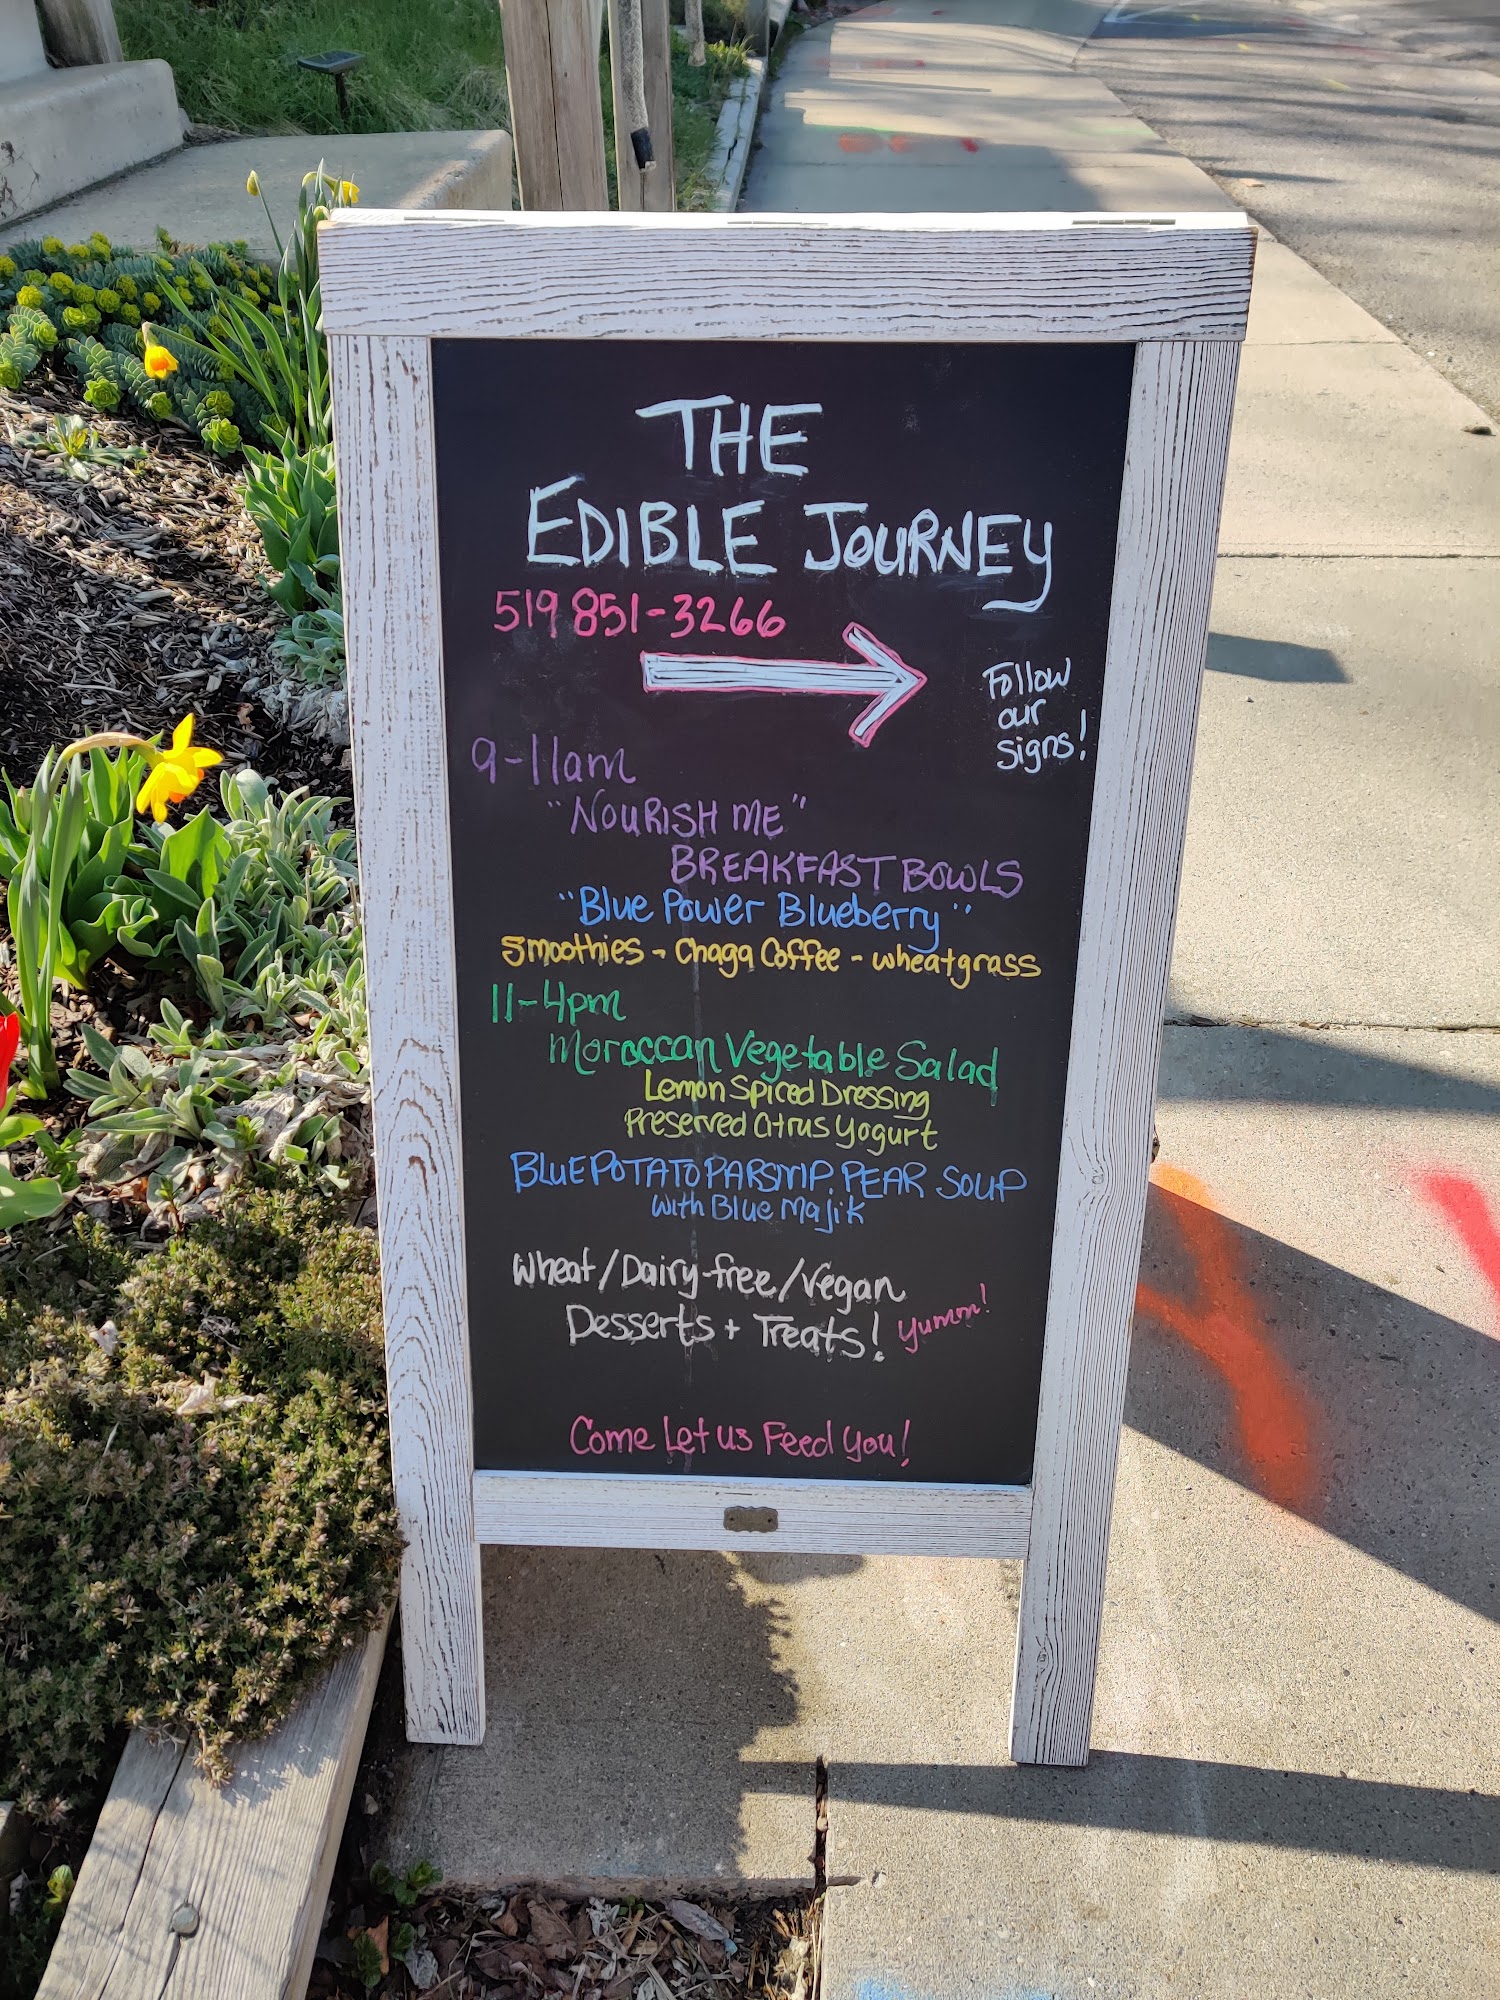 THE
EDIBLE JOURNEY
519 851-3266
Follow
our
signs!
9-11am
"NOURISH ME"
BREAKFAST BOWLS
"Blue Power Blueberry"
Smoothies - Chaga Coffee - wheatgrass
11-4pm
Moroccan Vegetable Salad
Lemon Spiced Dressing
Preserved Citrus Yogurt
BLUE POTATO PARSNIP PEAR SOUP
with Blue Majik
Wheat/Dairy-free/Vegan
Desserts + Treats! Yumm!
Come Let us Feed You!